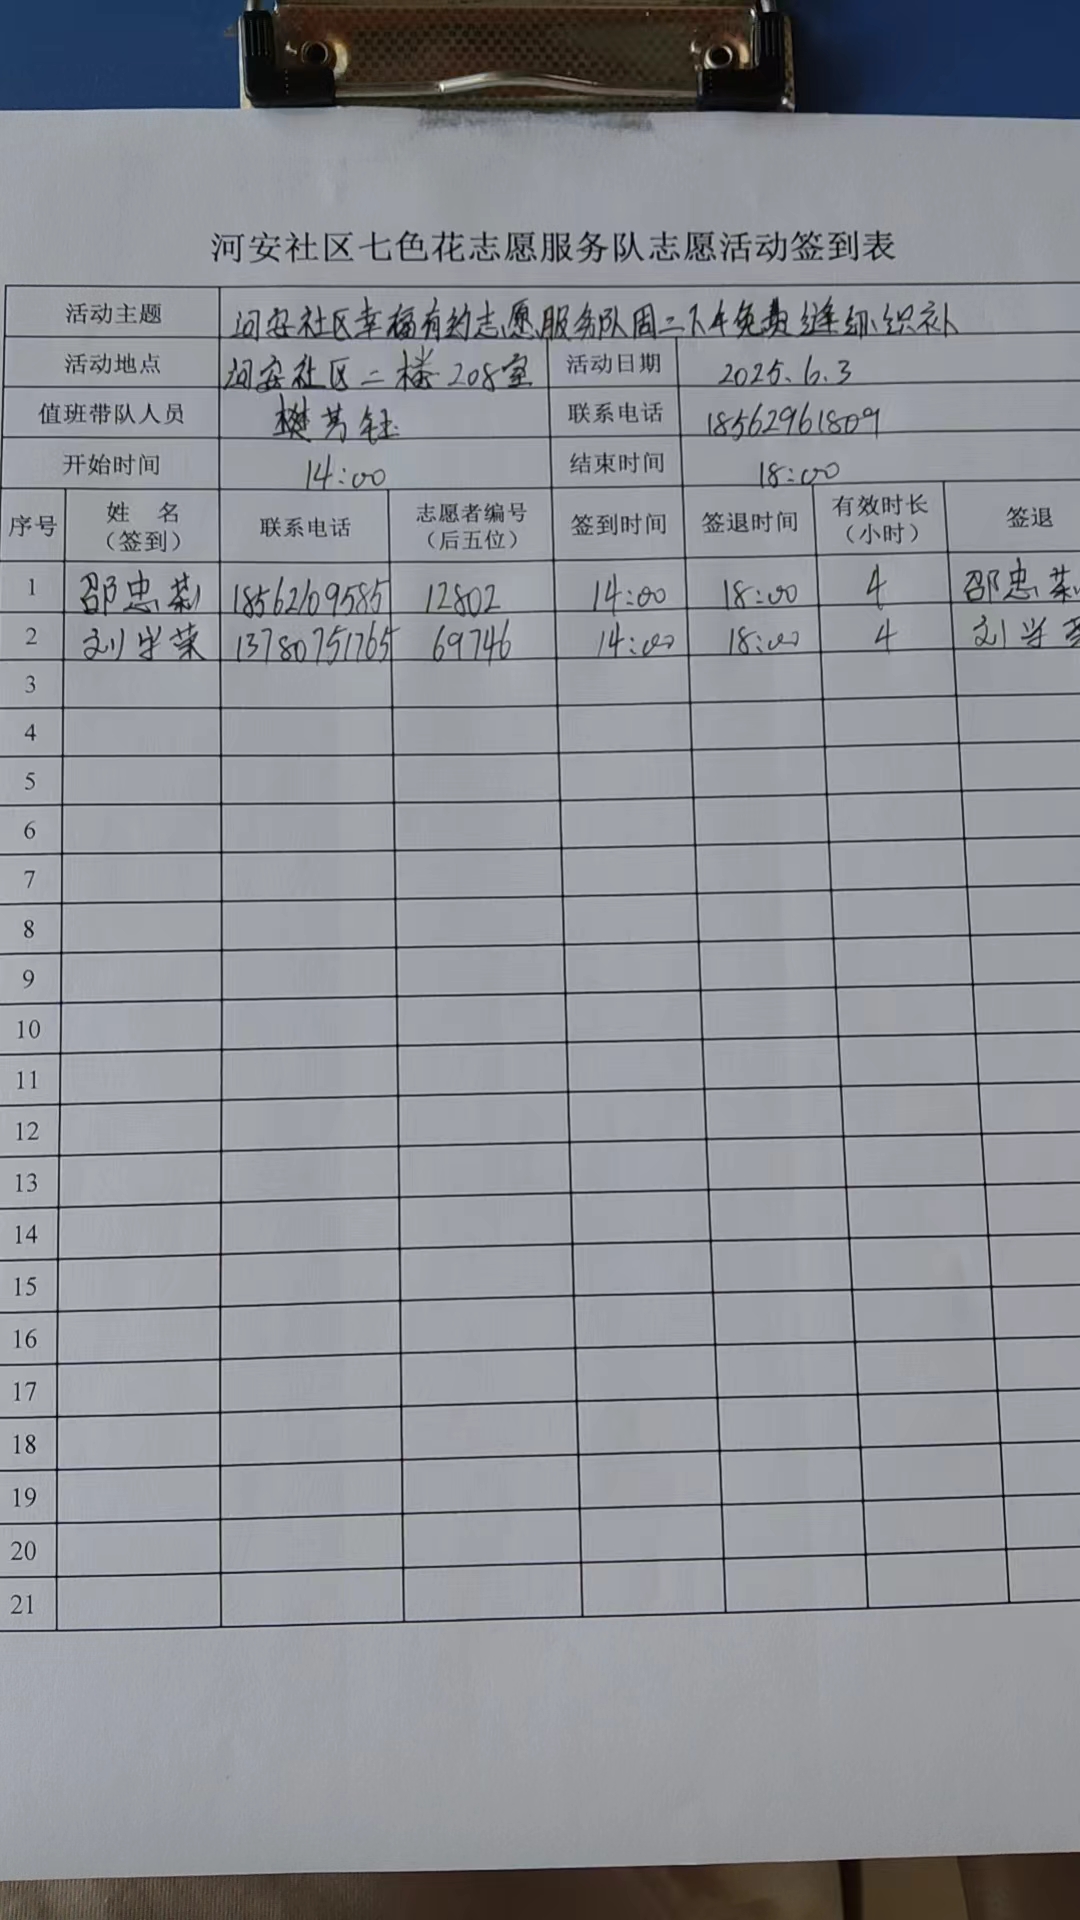 河安社区七色花志愿服务队志愿活动签到表
活动主题 河安社区幸福有约志愿服务队周二下午免费缝纫织补
活动地点 河安社区二楼208室 活动日期 2025.6.3
值班带队人员 樊芳钰 联系电话 18562961809
开始时间 14:00 结束时间 18:00
序号 姓 名（签到） 联系电话 志愿者编号（后五位） 签到时间 签退时间 有效时长（小时） 签退
1 邵忠菊 18562109585 12802 14:00 18:00 4 邵忠菊
2 刘学荣 13780751765 69746 14:00 18:00 4 刘学荣
3
4
5
6
7
8
9
10
11
12
13
14
15
16
17
18
19
20
21